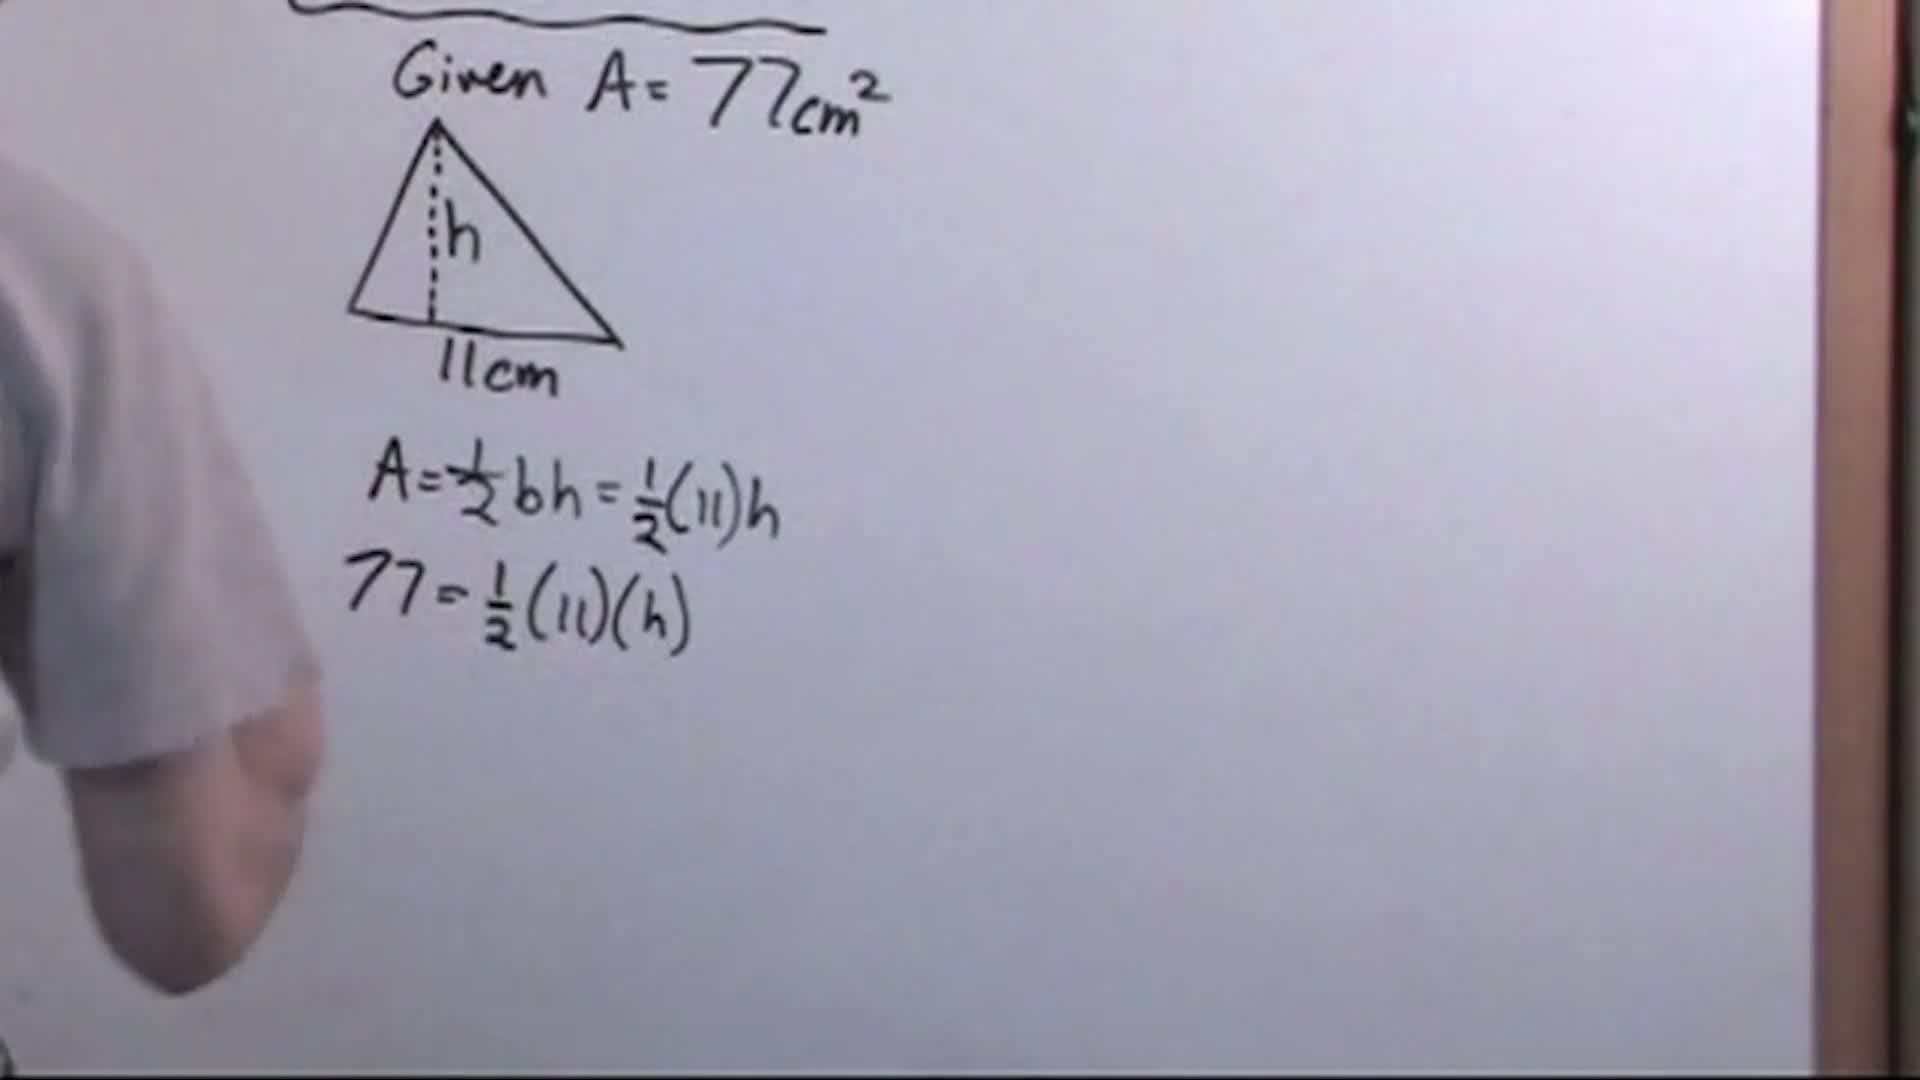 Given A= 77cm²
h
11cm
A=½bh=½(11)h
77=½(11)(h)